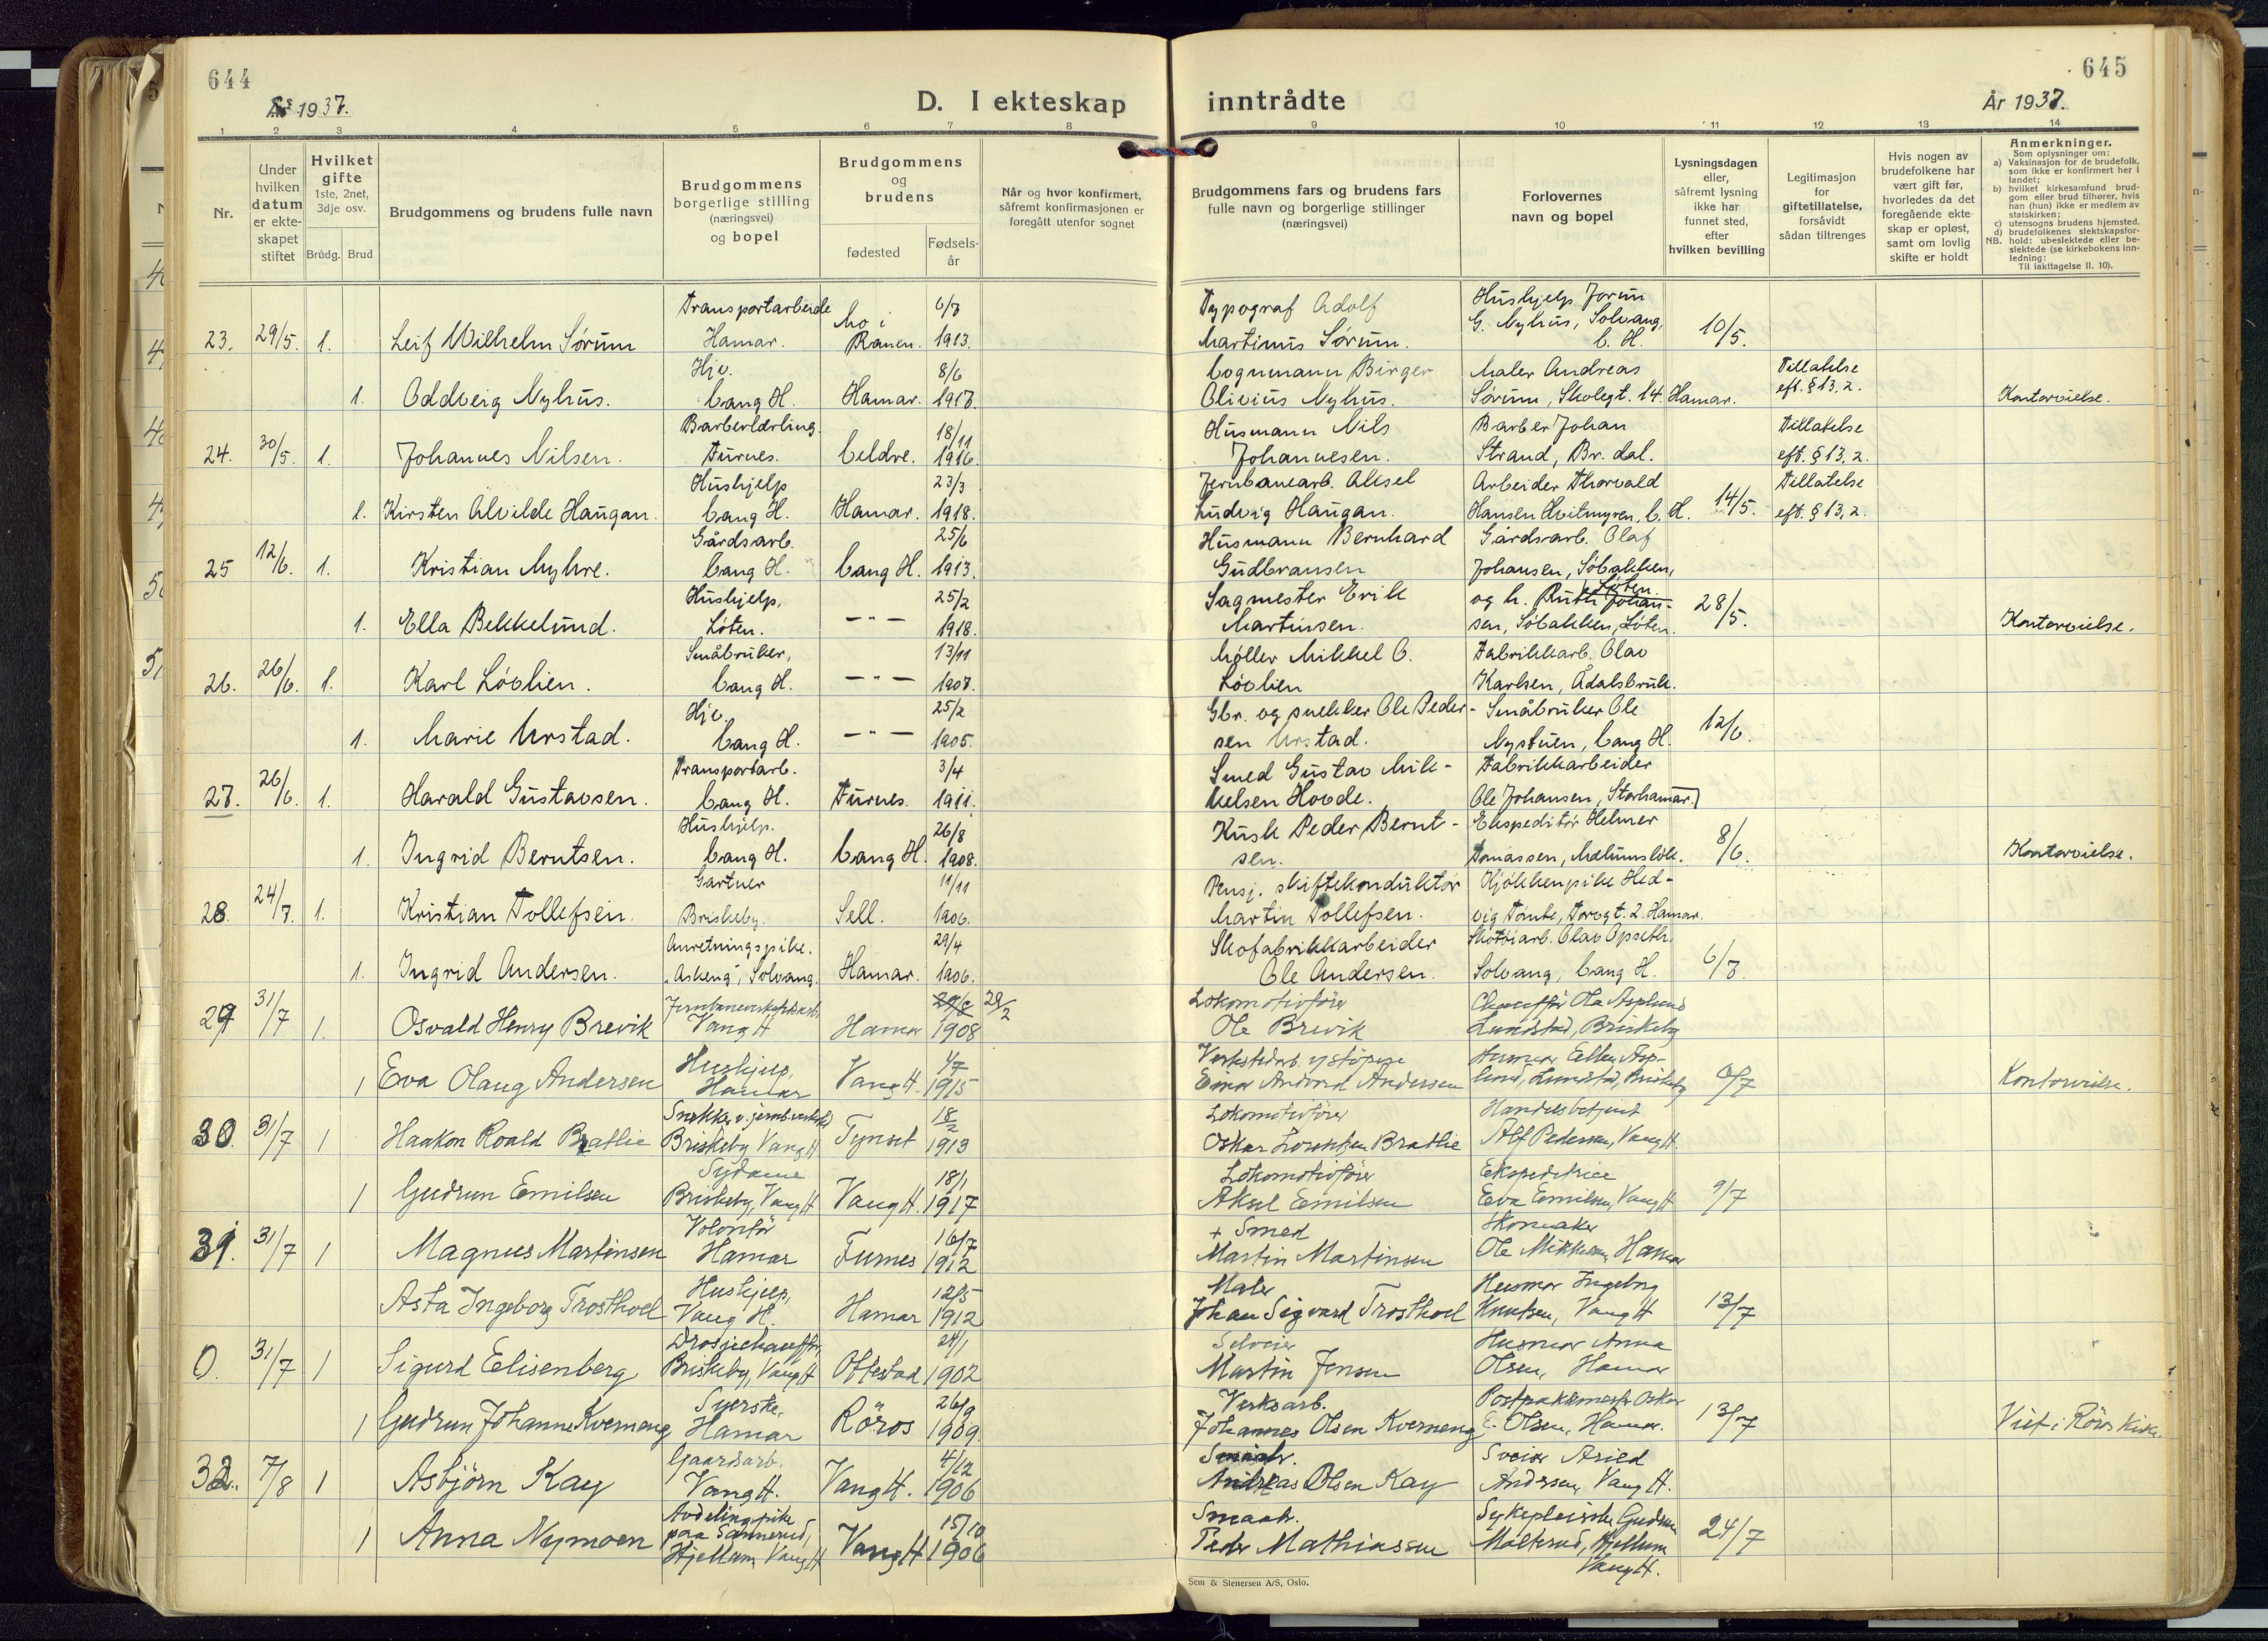 644
År 1937.
D. I ekteskap
inntrådte
År 1937.
645
1 2 3 4 5 6 7 8 9 10 11 12 13 14
Nr.
Under hvilken datum er ekte-skapet stiftet
Hvilket gifte 1ste, 2net, 3dje osv.
Brudg. Brud
Brudgommens og brudens fulle navn
Brudgommens borgerlige stilling (næringsvei) og bopel
Brudgommens og brudens
fødested Fødsels-år
Når og hvor konfirmert, såfremt konfirmasjonen er foregått utenfor sognet
Brudgommens fars og brudens fars fulle navn og borgerlige stillinger (næringsvei)
Forlovernes navn og bopel
Lysningsdagen eller, såfremt lysning ikke har funnet sted, efter hvilken bevilling
Legitimasjon for giftetillatelse, forsåvidt sådan tiltrenges
Hvis nogen av brudefolkene har vært gift før, hvorledes da det foregående ekte-skap er opløst, samt om lovlig skifte er holdt
Anmerkninger.
Som oplysninger om:
a) Vaksinasjon for de brudefolk, som ikke er konfirmert her i landet;
b) hvilket kirkesamfund brud-gom eller brud tilhører, hvis han (hun) ikke er medlem av statskirken;
c) utensogns brudens hjemsted.
d) brudefolkenes slektskapsfor-
NB. hold: ubeslektede eller be-slektede (se kirkebokens inn-ledning:
Til iakttagelse II. 10).
23. 29/5. 1. Leif Wilhelm Sørum Transportarbeide Hamar. Mo i Ranen. 6/7 1913. Typograf Adolf Martinus Sørum. Hushjelp Jorun G. Nyhus, Solvang, V. H. 10/5.
1. Oddveig Nyhus. Hjv. Vang H. Hamar. 8/6 1917. Vognmann Birger Olivius Nyhus. Maler Andreas Sørum, Skolegt. 14. Hamar. Tillatelse eft. § 13, 2. Kontorvielse.
24. 30/5. 1. Johannes Nilsen. Barberlærling. Furnes. Veldre. 18/11 1916. Husmann Nils Johannesen. Barber Johan Strand, Br. dal. Tillatelse eft. § 13, 2.
1. Kirsten Alvilde Haugan. Hushjelp Vang H. Hamar. 23/3 1918. Jernbanearb. Aksel Ludvig Haugan. Arbeider Thorvald Hansen Hvitmyren, V. H. 14/5. Tillatelse eft. § 13, 2.
25 12/6. 1. Kristian Myhre. Gårdsarb. Vang H. Vang H. 25/6 1913. Husmann Bernhard Gudbransen Gårdsarb. Olaf Johansen, Søbakken, Løten
1. Ella Bekkelund. Hushjelp, Løten. — " — 25/2 1918. Sagmester Erik Martinsen. og h. Ruth Johan-sen, Søbakken, Løten. 28/5. Kontorvielse.
26. 26/6. 1. Karl Løvlien. Småbruker, Vang H. — " — 13/11 1907. Møller Mikkel O. Løvlien Fabrikkarb. Olav Karlsen, Ådalsbruk.
1. Marie Urstad. Hjv. Vang H. — " — 25/2 1905. Gbr. og snekker Ole Peder-sen Urstad. Småbruker Ole Nystuen, Vang H. 12/6.
27. 26/6. 1. Harald Gustavsen. Transportarb. Vang H. Furnes. 3/4 1911. Smed Gustav Mik-kelsen Hovde. Fabrikkarbeider Ole Johansen, Storhamar.
1. Ingrid Berntsen. Hushjelp. Vang H. Vang H. 26/8 1908. Kusk Peder Bernt-sen. Ekspeditør Helmer Tomassen, Mælumsløk. 8/6. Kontorvielse.
28. 24/7. 1. Kristian Tollefsen. Gartner Briskeby. Sell. 11/11 1906. Pensj. skiftekonduktør Martin Tollefsen. Kjøkkenpike Hed-vig Tomte, Torvgt. 2. Hamar.
1. Ingrid Andersen. Anretningspike. „Askeng", Solvang. Hamar. 29/4 1906. Skofabrikkarbeider Ole Andersen. Skotøiarb. Olav Opseth. Solvang, Vang H. 6/7.
29 31/7 1. Osvald Henry Brevik Vang H Hamar 29/2 1908 Lokomotivfører Ole Brevik Chauffør Ola Asplund Lundstad, Briskeby
1 Eva Olaug Andersen Hushjelp, Hamar Vang H. 4/7 1915 Einar Andersen Husmor Ellen Asp-lund, Lundstad, Briskeby 6/7 Kontorvielse.
30. 31/7 1 Haakon Roald Bratlie Snekker v. jernb.verksted Briskeby, Vang H Tynset 18/2 1913 Lokomotivfører Oskar Lorentzen Bratlie Handelsbetjent Alf Pedersen, Vang H.
1 Gudrun Emilsen Sydame Briskeby, Vang H Vang H. 18/1 1917 Lokomotivfører Aksel Emilsen Ekspeditrice Eva Emilsen, Vang H 9/7
31. 31/7 1 Magnus Martinsen Volontør Hamar Furnes 16/7 1912 + Smed Martin Martinsen Skomaker Ole Mikkelsen, Hamar
Asta Ingeborg Trosthoel Hushjelp, Vang H. Hamar 12/5 1912 Maler Johan Sigvard Trosthoel Husmor Ingeborg Knutsen, Vang H 13/7
0. 31/7 1 Sigurd Elisenberg Drosjechauffør, Briskeby, Vang H Ottestad 24/1 1902 Selveier Martin Jensen Husmor Anna Olsen, Hamar
1 Gudrun Johanne Kverneng Syerske, Hamar Röros 26/9 1909. Verksarb. Johannes Olsen Kverneng Postpakkmester Oskar E. Olsen, Hamar. 13/7 Viet i Röros Kirke.
32. 7/8 1 Asbjörn Kay Gaardsarb. Vang H. Vang H. 4/12 1906 Smaabr. Andreas Olsen Kay Sveier Arild Andersen, Vang H.
1 Anna Nymoen Avdelingspike paa Sannerud, Hjellum, Vang H Vang H 15/10 1906 Smaabr. Peder Mathiassen Sykepleierske Gudrun Molterud, Hjellum Vang H. 24/7
Sem & Stenersen A/S, Oslo.